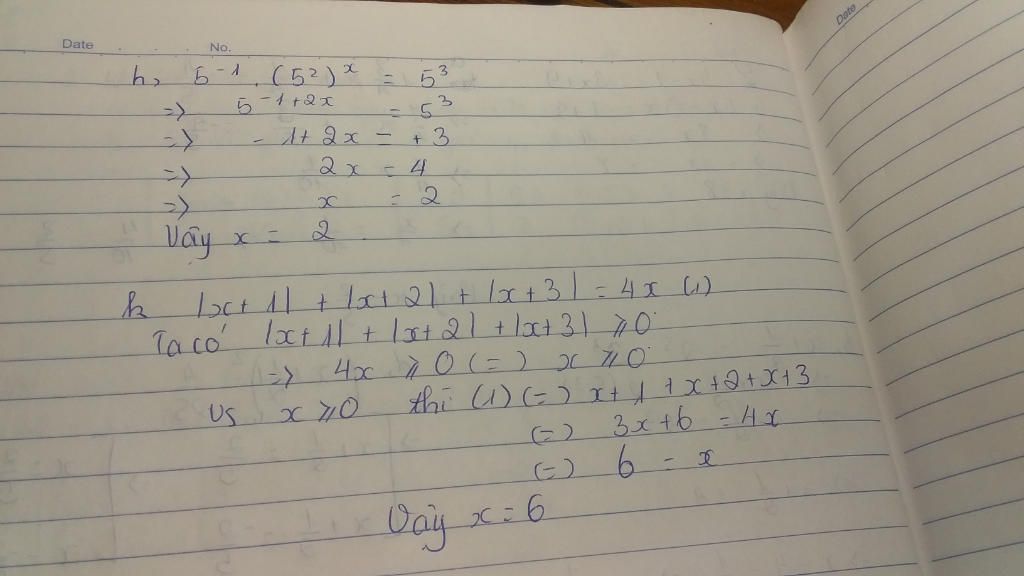 Date No.
Date
h, 5⁻¹ . (5²)ˣ = 5³
=> 5⁻¹⁺²ˣ = 5³
=> - 1 + 2x = + 3
=> 2x = 4
=> x = 2
Vậy x = 2
k |x + 1| + |x + 2| + |x + 3| = 4x (1)
Ta có |x + 1| + |x + 2| + |x + 3| ⩾ 0
=> 4x ⩾ 0 (=) x ⩾ 0
Vs x ⩾ 0 thì (1) (=) x + 1 + x + 2 + x + 3
(=) 3x + 6 = 4x
(=) 6 = x
Vậy x = 6